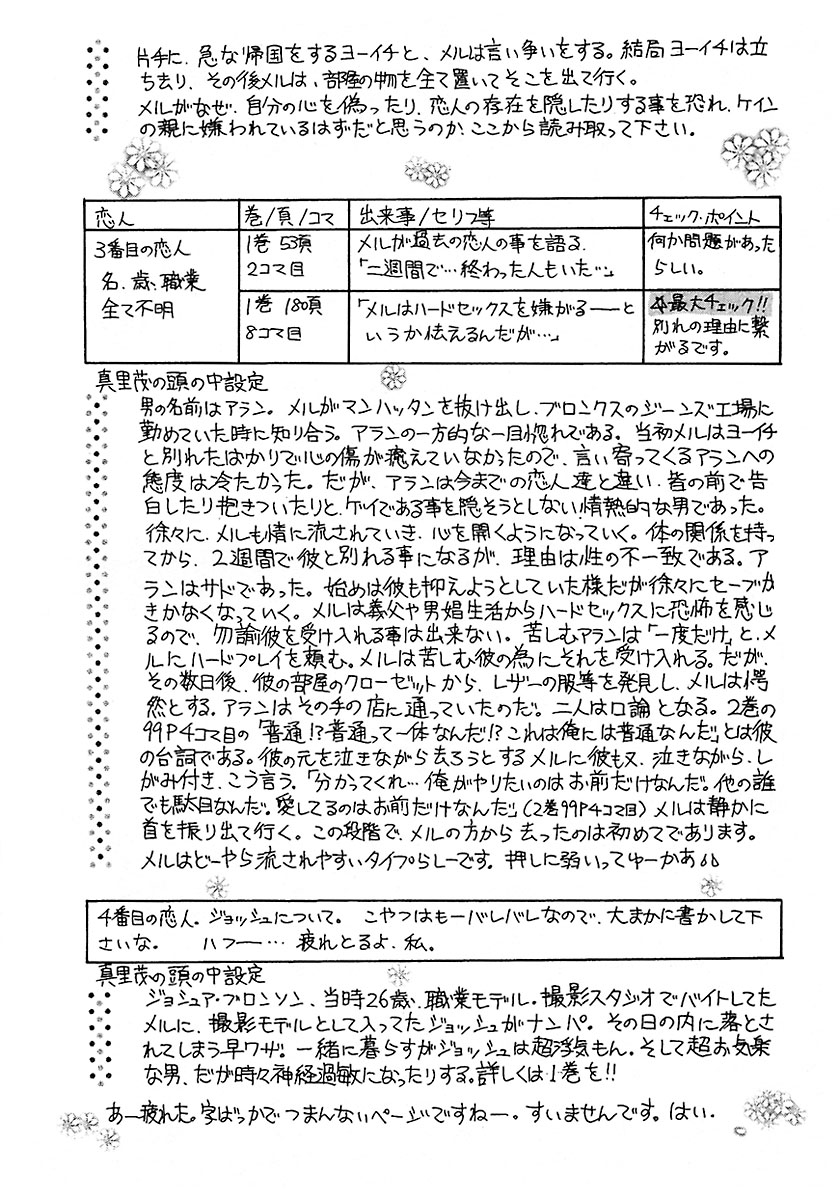 片手に、急な帰国をするヨーイチと、メルは言い争いをする。結局ヨーイチは立
ち去り、その後メルは、部屋の物を全て置いてそこを出て行く。
メルがなぜ、自分の心を偽ったり、恋人の存在を隠したりする事を恐れ、ケイン
の親に嫌われているはずだと思うのか、ここから読み取って下さい。
恋人
巻/頁/コマ
出来事/セリフ等
チェック・ポイント
3番目の恋人
名、歳、職業
全て不明
1巻 53頁
2コマ目
メルが過去の恋人の事を語る、
「二週間で…終わった人もいた…」
何か問題があった
らしい。
1巻 180頁
8コマ目
「メルはハードセックスを嫌がる――と
いうか怯えるんだが…」
最大チェック!!
別れの理由に繋
がるです。
真里茂の頭の中設定
男の名前はアラン。メルがマンハッタンを抜け出し、ブロンクスのジーンズ工場に
勤めていた時に知り合う。アランの一方的な一目惚れである。当初メルはヨーイチ
と別れたばかりで心の傷が癒えていなかったので、言い寄ってくるアランへの
態度は冷たかった。だが、アランは今までの恋人達と違い、皆の前で告
白したり抱きついたりと、ゲイである事を隠そうとしない情熱的な男であった。
徐々に、メルも情に流されていき、心を開くようになっていく。体の関係を持っ
てから、2週間で彼と別れる事になるが、理由は性の不一致である。ア
ランはサドであった。始めは彼も抑えようとしていた様だが徐々にセーブが
きかなくなっていく。メルは義父や男娼生活からハードセックスに恐怖を感じ
るので、勿論彼を受け入れる事は出来ない。苦しむアランは「一度だけ」と、メ
ルにハードプレイを頼む。メルは苦しむ彼の為にそれを受け入れる。だが、
その数日後、彼の部屋のクローゼットから、レザーの服等を発見し、メルは愕
然とする。アランはその手の店に通っていたのだ。二人は口論となる。2巻の
99P4コマ目の「普通!?普通って一体なんだ!?これは俺には普通なんだ」とは彼
の台詞である。彼の元を泣きながら去ろうとするメルに彼も又、泣きながら、し
がみ付き、こう言う。「分かってくれ…俺がやりたいのはお前だけなんだ。他の誰
でも駄目なんだ。愛してるのはお前だけなんだ」(2巻99P4コマ目)メルは静かに
首を振り出て行く。この段階で、メルの方から去ったのは初めてであります。
メルはどーやら流されやすいタイプらしーです。押しに弱いってゆーかあ
4番目の恋人。ジョッシュについて。 こやつはもーバレバレなので、大まかに書かして下
さいな。 ハフー… 疲れとるよ、私。
真里茂の頭の中設定
ジョシュア・ブロンソン、当時26歳、職業モデル。撮影スタジオでバイトしてた
メルに、撮影モデルとして入ってたジョッシュがナンパ。その日の内に落とさ
れてしまう早ワザ。一緒に暮らすがジョッシュは超浮気もん。そして超お気楽
な男、だが時々神経過敏になったりする。詳しくは1巻を!!
あー疲れた。字ばっかでつまんないページですねー。すいませんです。はい。